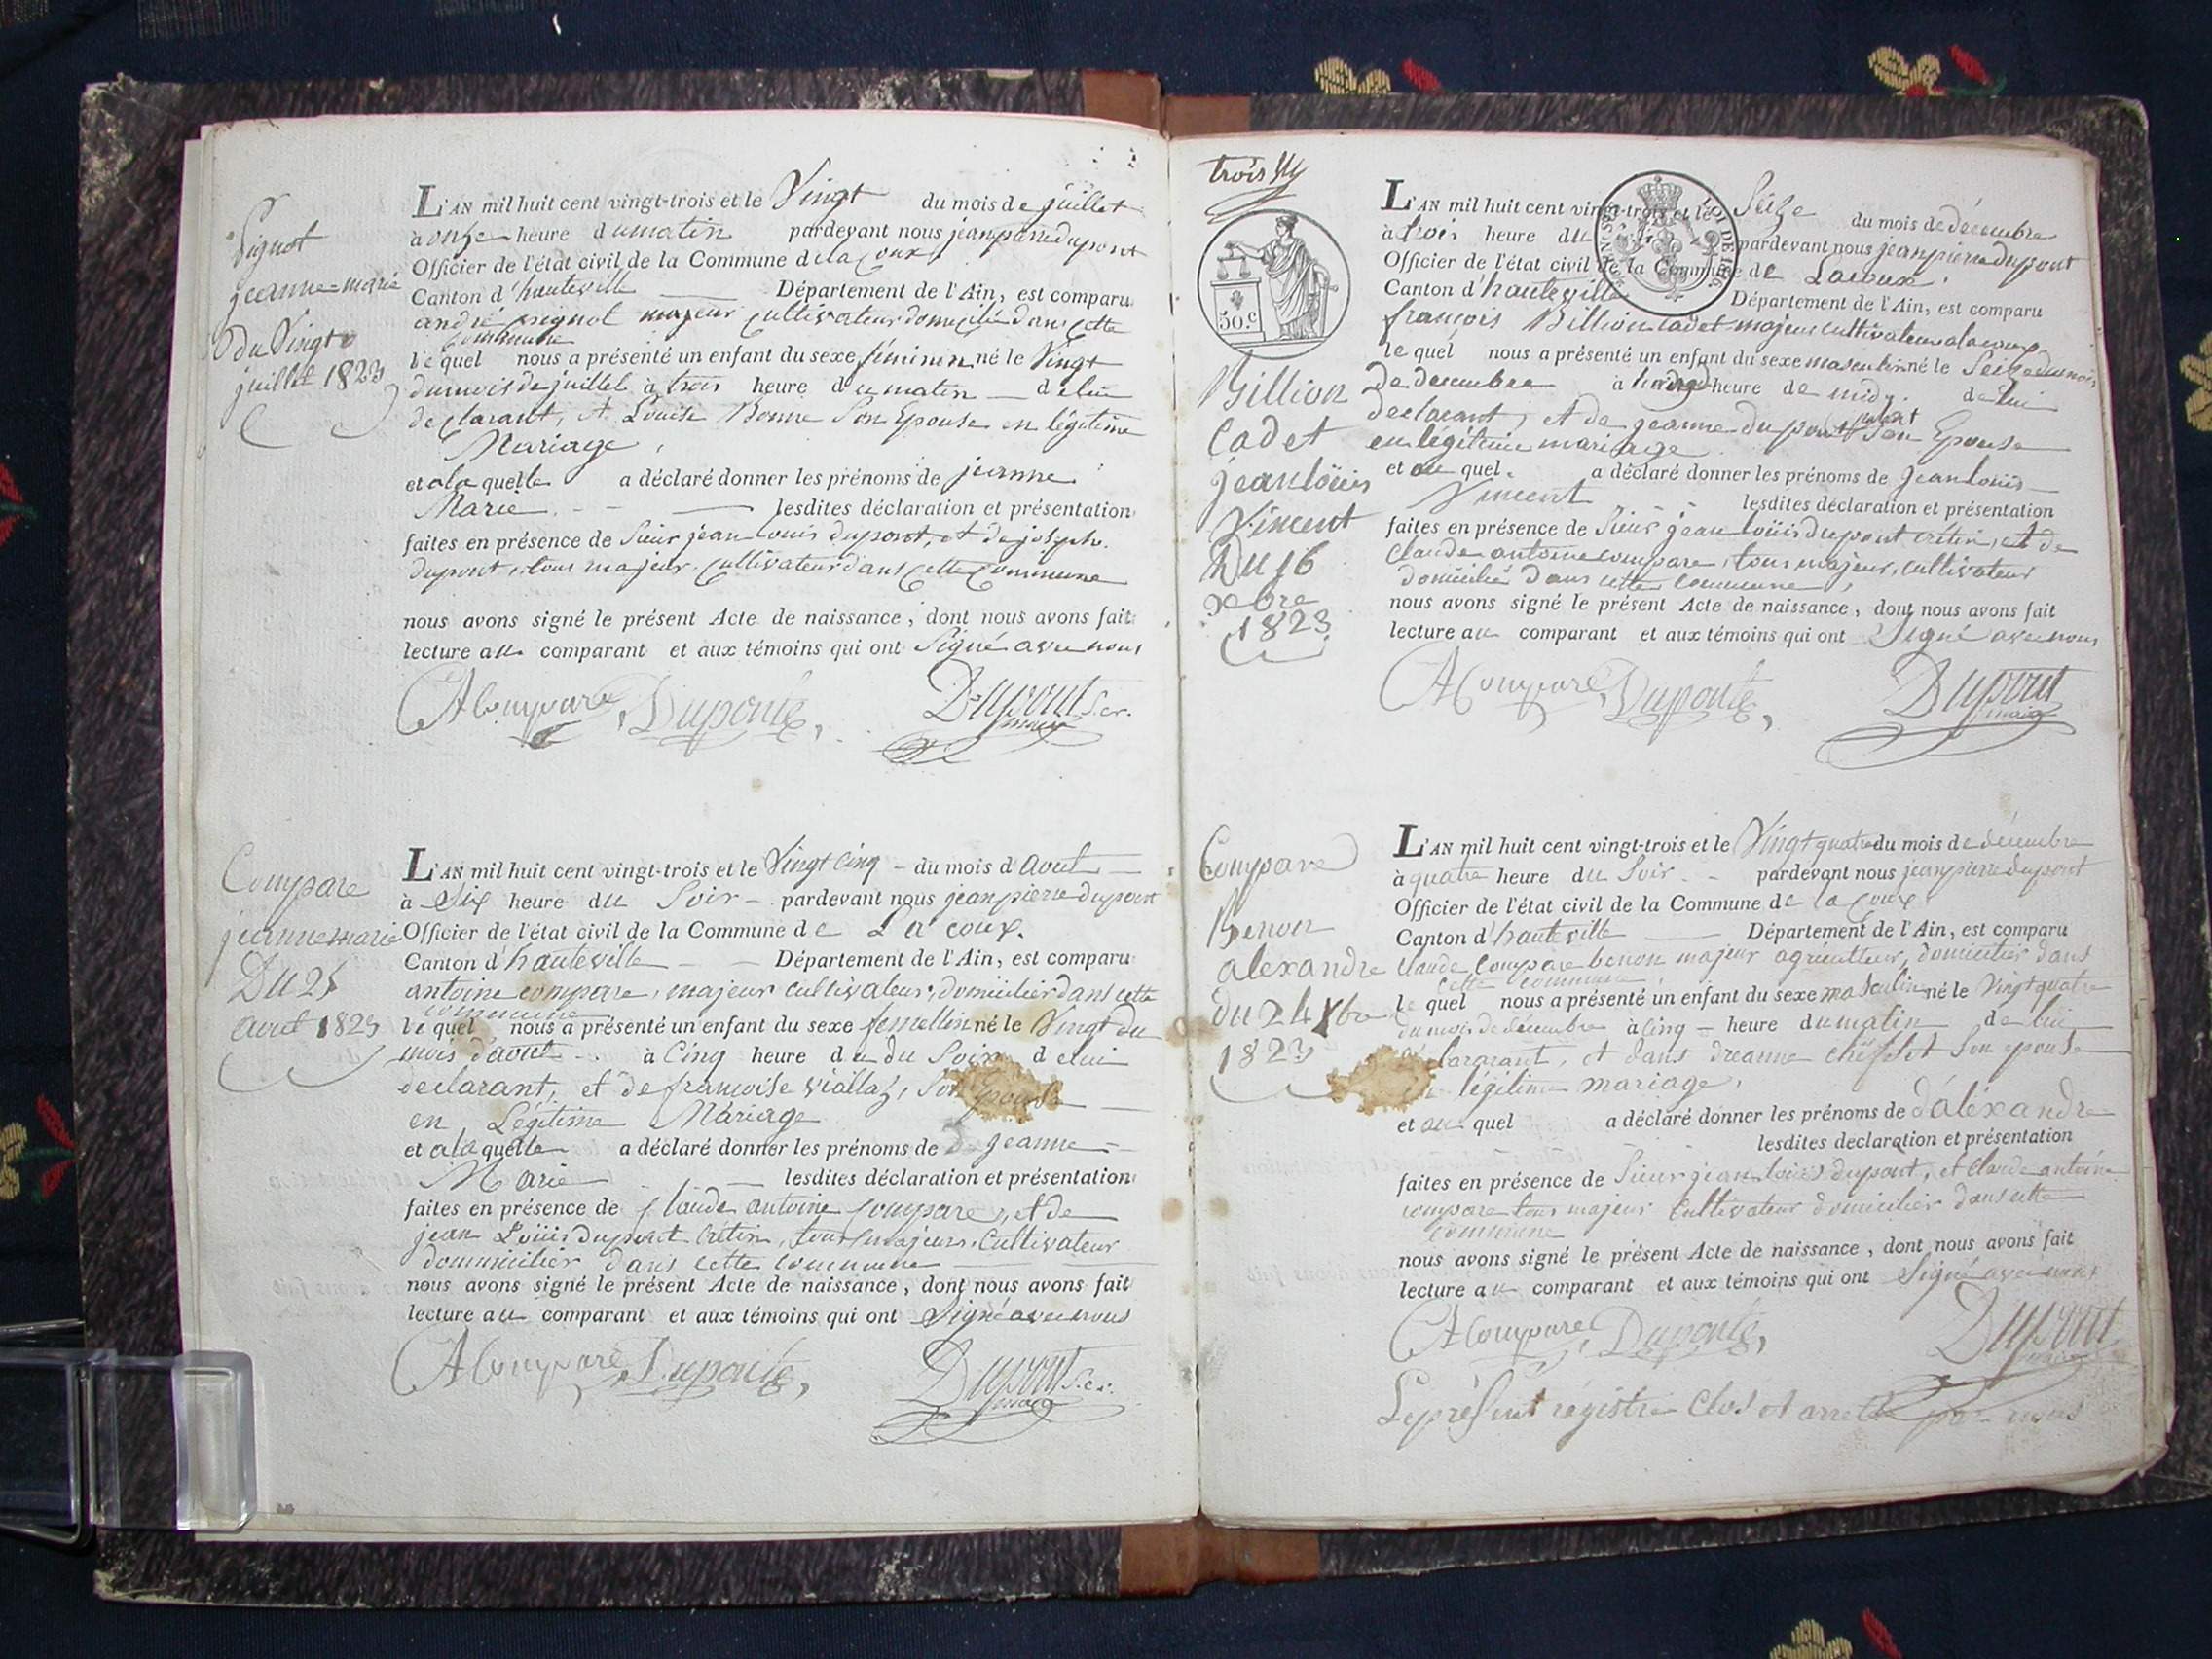 Pignot
jeanne=marie
du Vingt
juillet 1823
L'AN mil huit cent vingt-trois et le Vingt du mois de juillet
à onze heure du matin pardevant nous jean pierre dupont
Officier de l'état civil de la Commune de la Coux
Canton d'hauteville Département de l'Ain, est comparu
andré pignot majeur cultivateur domicilié dans cette
commune
le quel nous a présenté un enfant du sexe féminin né le Vingt
du mois de juillet à trois heure du matin de lui
declarant, et Louise Bonne Son Epouse en légitime
Mariage
et a la quelle a déclaré donner les prénoms de jeanne
Marie lesdites déclaration et présentation
faites en présence de Sieur jean Louis dupont, et de joseph
dupont, tous majeur, Cultivateur dans Cette Commune
nous avons signé le présent Acte de naissance, dont nous avons fait
lecture au comparant et aux témoins qui ont Signé avec nous
A Compare Dupont Dupont
maire
Compare
jeanne marie
Du 25
aout 1823
L'AN mil huit cent vingt-trois et le Vingt Cinq du mois d'aout
à Six heure du Soir pardevant nous jean pierre dupont
Officier de l'état civil de la Commune de La coux.
Canton d'hauteville Département de l'Ain, est comparu
antoine compare, majeur cultivateur, domicilier dans cette
commune
le quel nous a présenté un enfant du sexe femellin né le Vingt du
mois d'aout à Cinq heure du du Soir de lui
declarant, et de françoise Viallaz, Son Epouse
en Légitime Mariage
et a la quelle a déclaré donner les prénoms de jeanne
Marie lesdites déclaration et présentation
faites en présence de Claude antoine Compare, et de
jean Louis dupont Crétin, tous majeurs, Cultivateur
dommicilier dans cette commune
nous avons signé le présent Acte de naissance, dont nous avons fait
lecture au comparant et aux témoins qui ont Signé avec nous
A Compare Dupont Dupont
maire
trois
50.c
Billion
Cadet
jean louis
Vincent
Du 16
xbre
1823
L'AN mil huit cent vingt-trois et le Seize du mois de décembre
à trois heure du pardevant nous jean pierre dupont
Officier de l'état civil de la Commune de Lacoux
Canton d'hauteville Département de l'Ain, est comparu
françois Billion cadet majeur cultivateur a la coux
le quel nous a présenté un enfant du sexe masculin né le Seize du mois
de decembre à heure de midy de lui
declarant, et de jeanne dupont Son Epouse
en légitime mariage
et au quel a déclaré donner les prénoms de jean louis
Vincent lesdites déclaration et présentation
faites en présence de Sieur jean louis dupont crétin, et de
Claude antoine compare, tous majeur, cultivateur
domicilié dans cette commune,
nous avons signé le présent Acte de naissance, dont nous avons fait
lecture au comparant et aux témoins qui ont Signé avec nous
A Compare Dupont Dupont
maire
Compare
Benon
alexandre
du 24 Xbre
1823
L'AN mil huit cent vingt-trois et le Vingt quatre du mois de décembre
à quatre heure du Soir pardevant nous jean pierre dupont
Officier de l'état civil de la Commune de la Coux
Canton d'hauteville Département de l'Ain, est comparu
Claude Compare benon majeur agriculteur, domicilier dans
cette commune
le quel nous a présenté un enfant du sexe masculin né le Vingt quatre
du mois de décembre à Cinq heure du matin de lui
et Son epouse
légitime mariage,
et au quel a déclaré donner les prénoms de d'aléxandre
lesdites declaration et présentation
faites en présence de Sieur jean louis dupont, et Claude antoine
compare tous majeur Cultivateur domicilier dans cette
commune
nous avons signé le présent Acte de naissance, dont nous avons fait
lecture au comparant et aux témoins qui ont Signé avec nous
A Compare Dupont Dupont
Le présent régistre Clos et arreté par nous